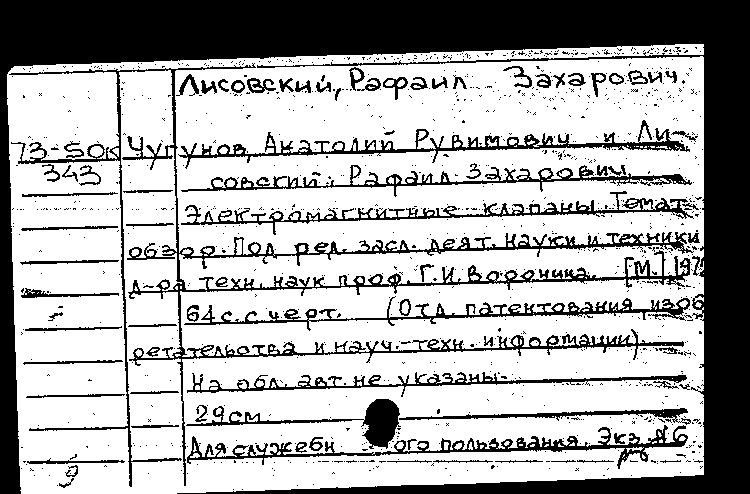 Лисовский, Рафаил Захарович.
73-50к Чугунов, Анатолий Рувимович и Ли-
343 совский, Рафаил Захарович.
Электромагнитные клапаны. Темат.
обзор. Под ред. засл. деят. науки и техники
д-ра техн. наук проф. Г.И. Воронина. [М.],
64 с. с черт. (Отд. патентования, изоб
ретательства и науч.-техн. информации).
На обл. авт. не указаны.
29 см
Для служебн ого пользования. Экз. №6
9